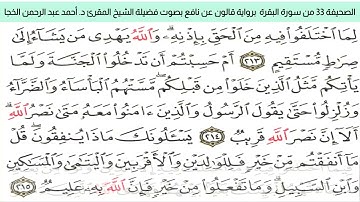 الصحيفة 33 من سورة البقرة برواية قالون عن نافع بصوت فضيلة الشيخ المقرئ د. أحمد عبد الرحمن الخجا
لِمَا اَخْتَلَفُوا فِيهِ مِنَ اَلْحَقِّ بِإِذْنِهِ وَاللَّهُ يَهْدِي مَنْ يَشَآءُ إِلَىٰ
صِرَٰطٍ مُّسْتَقِيمٍ ٢١٣ أَمْ حَسِبْتُمُ أَن تَدْخُلُوا اَلْجَنَّةَ وَلَمَّا
يَأْتِكُم مَّثَلُ اُلَّذِينَ خَلَوْا مِن قَبْلِكُم مَّسَّتْهُمُ اُلْبَأْسَآءُ وَالضَّرَّآءُ
وَزُلْزِلُوا حَتَّىٰ يَقُولُ اُلرَّسُولُ وَالَّذِينَ ءَامَنُوا مَعَهُ مَتَىٰ نَصْرُ اُللَّهِ
أَلَآ إِنَّ نَصْرَ اَللَّهِ قَرِيبٌ ٢١٤ يَسْـَٔلُونَكَ مَاذَا يُنفِقُونَ قُلْ
مَآ أَنفَقْتُم مِّنْ خَيْرٍ فَلِلْوَٰلِدَيْنِ وَالْأَقْرَبِينَ وَالْيَتَٰمَىٰ وَالْمَسَٰكِينِ
وَابْنِ اِلسَّبِيلِ وَمَا تَفْعَلُوا مِنْ خَيْرٍ فَإِنَّ اَللَّهَ بِهِ عَلِيمٌ ٢١٥